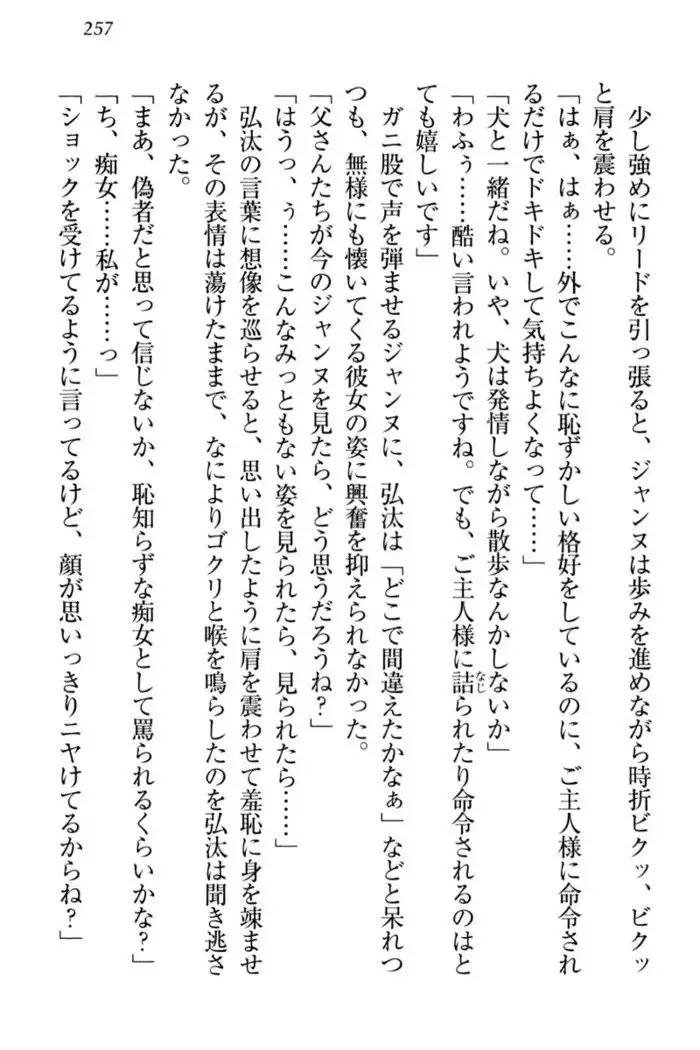 257
少し強めにリードを引っ張ると、ジャンヌは歩みを進めながら時折ビクッ、ビクッ
と肩を震わせる。
「はぁ、はぁ……外でこんなに恥ずかしい格好をしているのに、ご主人様に命令され
るだけでドキドキして気持ちよくなって……」
「犬と一緒だね。いや、犬は発情しながら散歩なんかしないか」
「わふぅ……酷い言われようですね。でも、ご主人様に詰られたり命令されるのはと
なじ
ても嬉しいです」
ガニ股で声を弾ませるジャンヌに、弘汰は「どこで間違えたかなぁ」などと呆れつ
つも、無様にも懐いてくる彼女の姿に興奮を抑えられなかった。
「父さんたちが今のジャンヌを見たら、どう思うだろうね？」
「はうっ、ぅ……こんなみっともない姿を見られたら、見られたら……」
弘汰の言葉に想像を巡らせると、思い出したように肩を震わせて羞恥に身を竦ませ
るが、その表情は蕩けたままで、なによりゴクリと喉を鳴らしたのを弘汰は聞き逃さ
なかった。
「まあ、偽者だと思って信じないか、恥知らずな痴女として罵られるくらいかな？」
「ち、痴女……私が……っ」
「ショックを受けてるように言ってるけど、顔が思いっきりニヤけてるからね？」